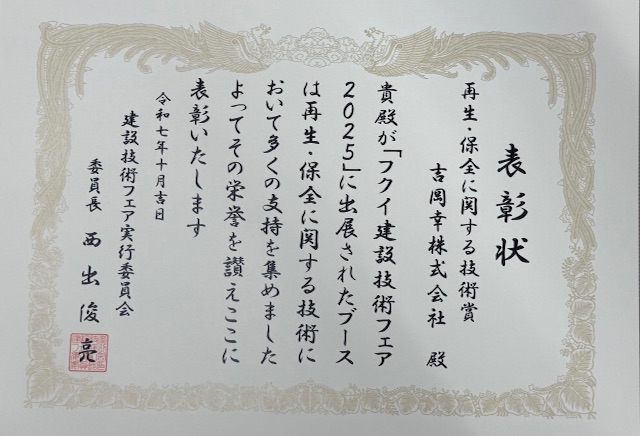 表彰状
再生・保全に関する技術賞
吉岡幸株式会社 殿
貴殿が「フクイ建設技術フェア
2025」に出展されたブース
は再生・保全に関する技術に
おいて多くの支持を集めました
よってその栄誉を讃えここに
表彰いたします
令和七年十月吉日
建設技術フェア実行委員会
委員長 西出俊亮